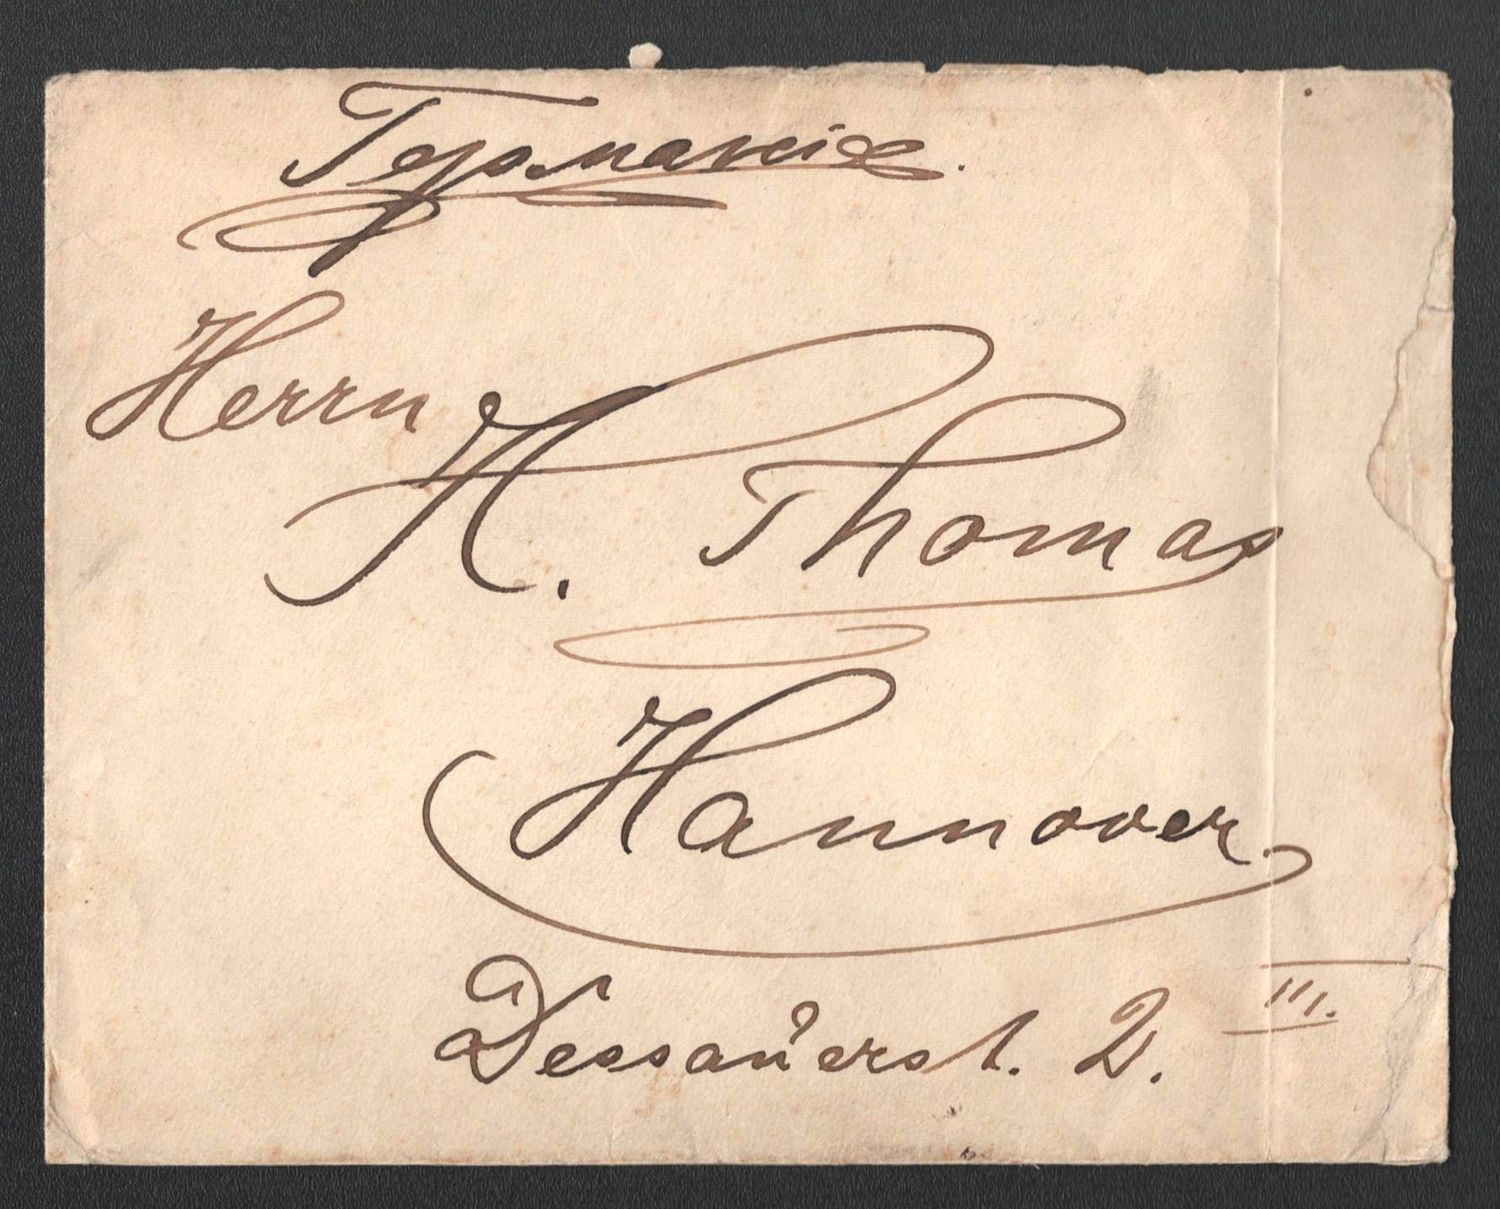 Германія.
Herrn
H. Thomas
Hannover.
Dessauerst. 2. III.